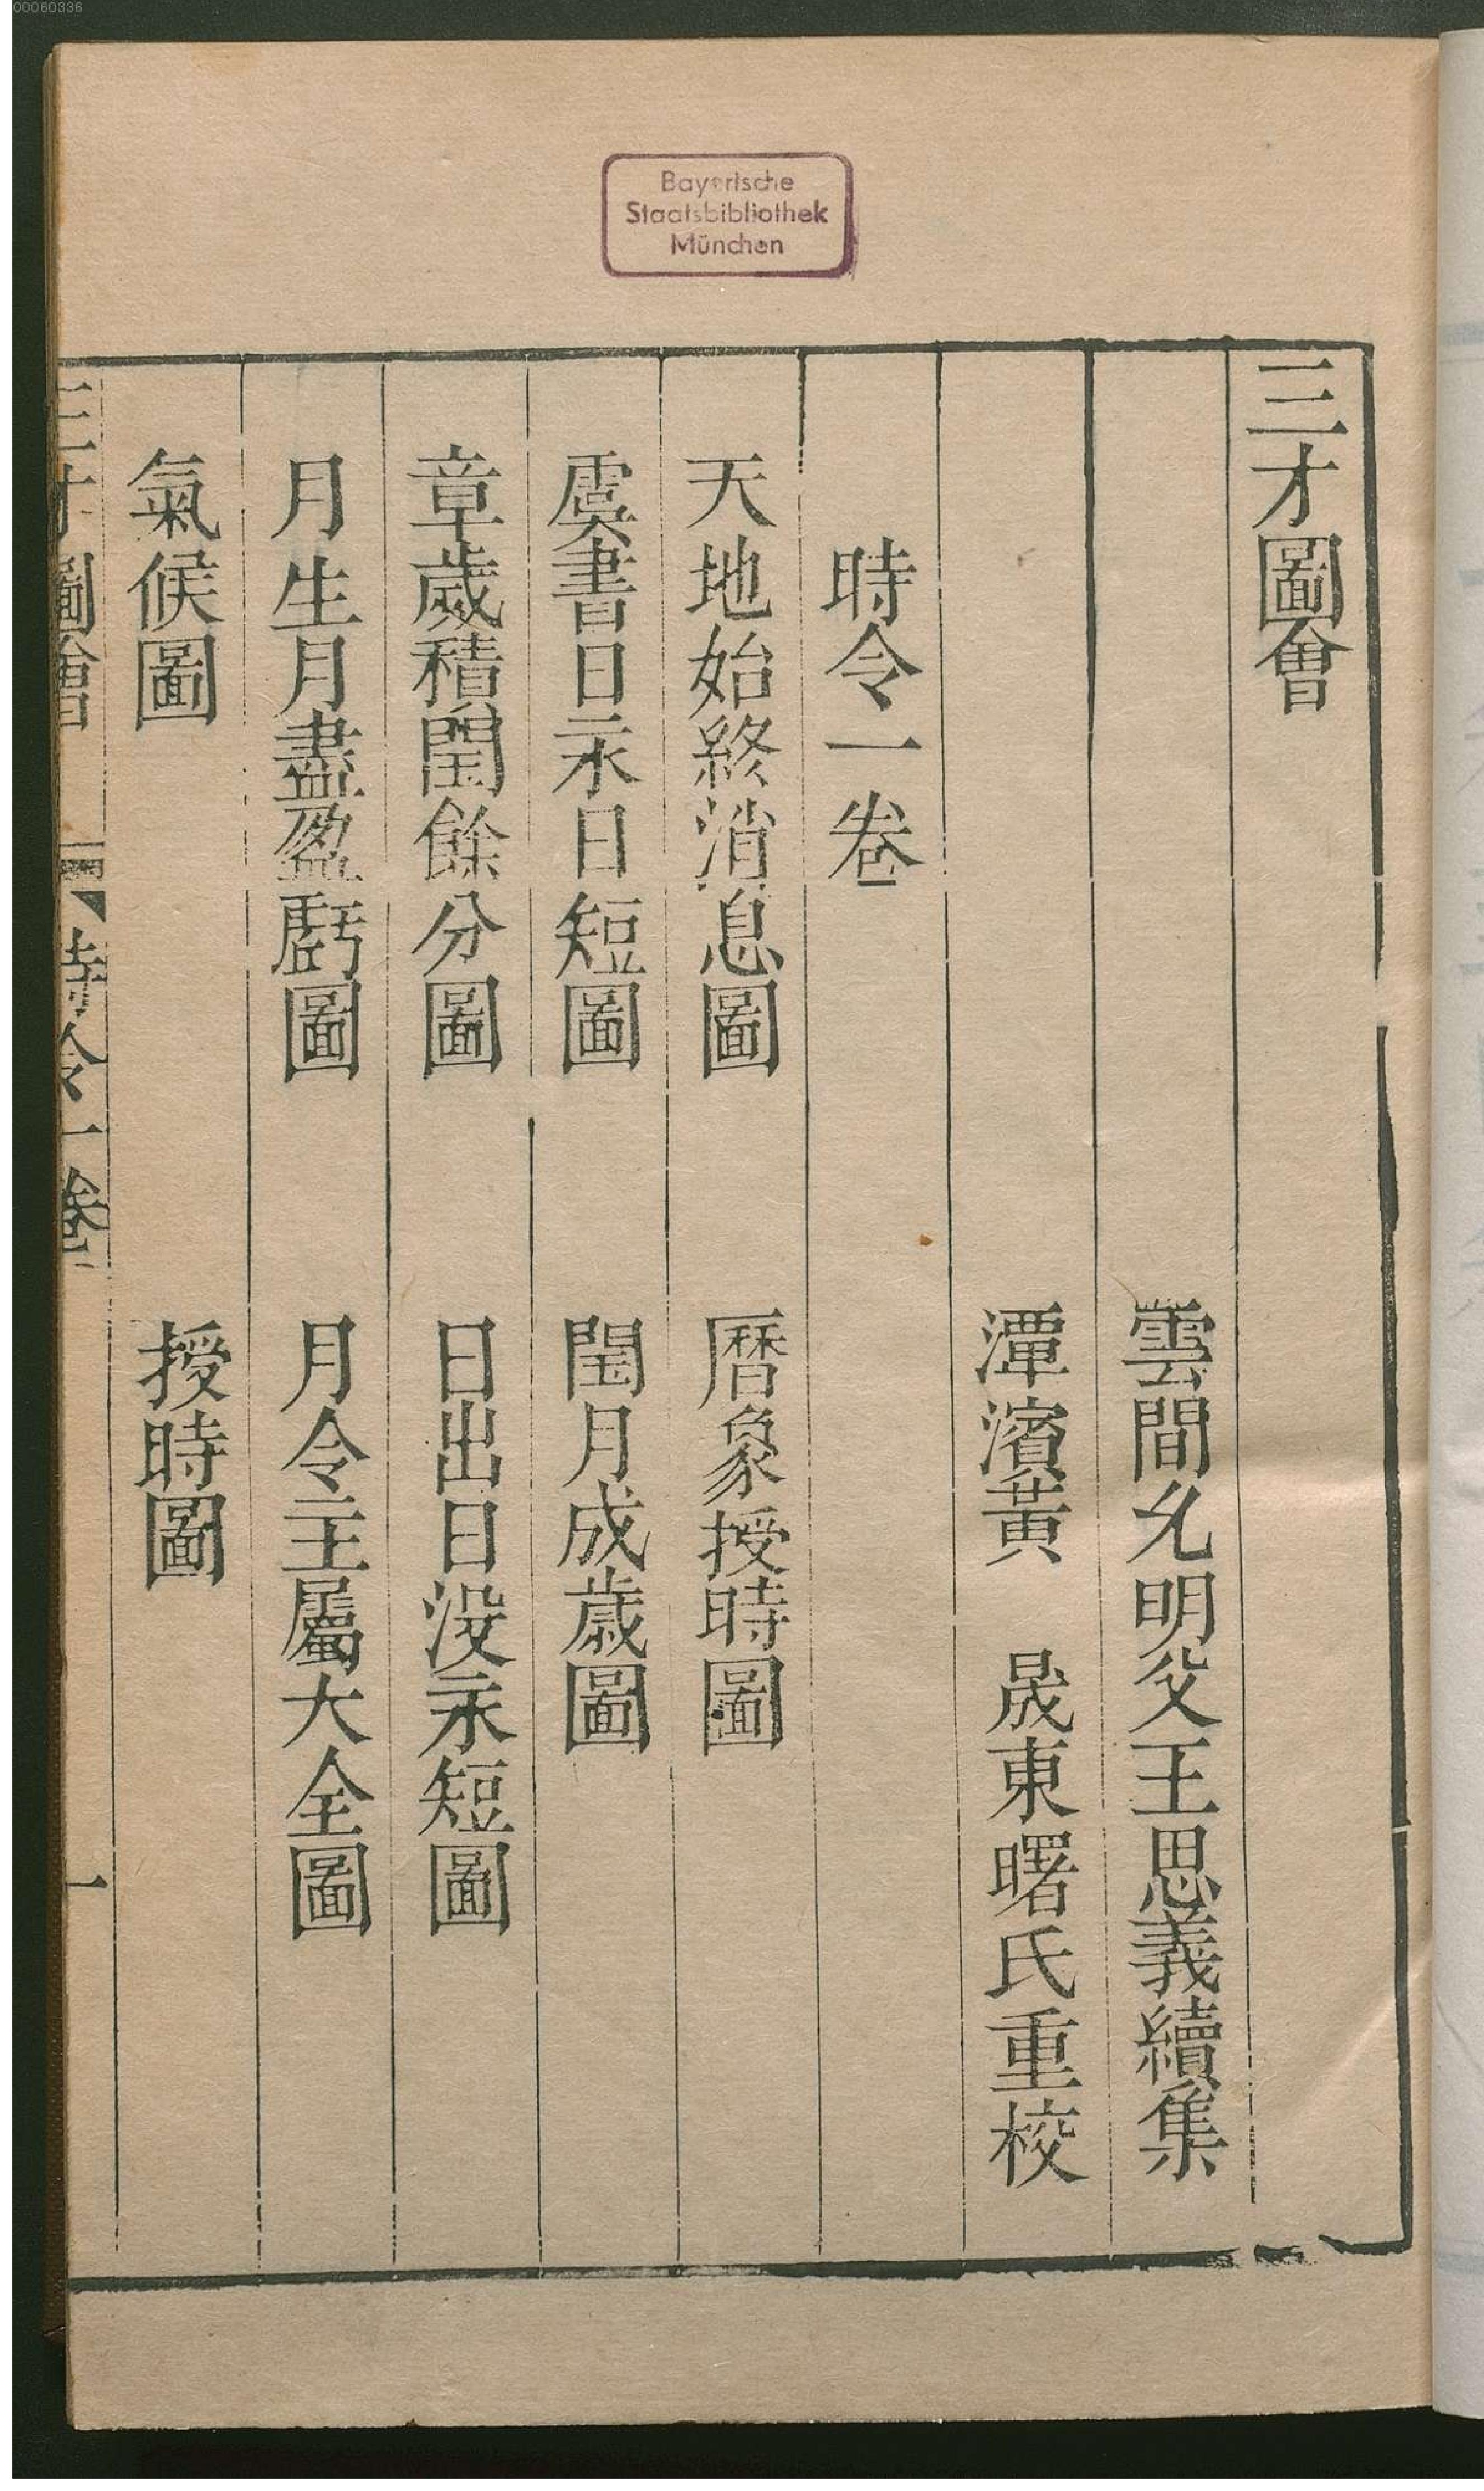 00060336
Bayerische
Staatsbibliothek
München
三才圖會
雲間允明父王思義續集
潭濱黃 晟東曙氏重校
時令一卷
天地始終消息圖 曆象授時圖
虞書日永日短圖 閏月成歲圖
章歲積閏餘分圖 日出日没永短圖
月生月盡盈虧圖 月令主屬大全圖
氣候圖 授時圖
三才圖會 時令一卷 一